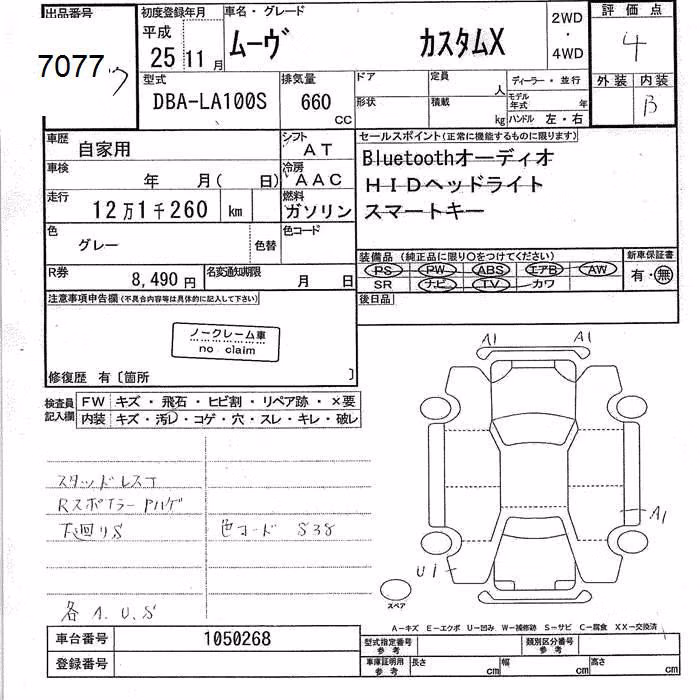 出品番号
7077 ワ
初度登録年月
平成
25 11 月
車名・グレード
ムーヴ カスタムX
2WD
・
4WD
評価点
4
外装 内装
B
型式
DBA-LA100S
排気量
660 CC
ドア 定員 人
形状 積載 kg
ディーラー・並行
モデル年式 年
ハンドル 左・右
車歴
自家用
シフト
AT
車検
年 月( 日)
冷房
AAC
走行
12万1千260 km
燃料
ガソリン
色
グレー
色替
色コード
R券
8,490 円
名変通知期限
月 日
セールスポイント(正常に機能するものに限ります)
Bluetoothオーディオ
HIDヘッドライト
スマートキー
装備品(純正品に限り○をつけてください)
PS PW ABS エアB AW
SR ナビ TV カワ
新車保証書
有・無
後日品
注意事項申告欄(不具合内容等は具体的に記入して下さい)
ノークレーム車
no claim
修復歴 有〔箇所 〕
検査員記入欄
FW キズ・飛石・ヒビ割・リペア跡・×要
内装 キズ・汚レ・コゲ・穴・スレ・キレ・破レ
スタッドレスT
Rスポイラー
下廻りS
色コード S38
各 A.U.S
A1 A1
A1
U1
スペア
A-キズ E-エクボ U-凹み W-補修跡 S-サビ C-腐食 XX-交換済
車台番号
1050268
登録番号
型式指定番号
参考
類別区分番号
参考
車庫証明用
参考
長さ cm 幅 cm 高さ cm